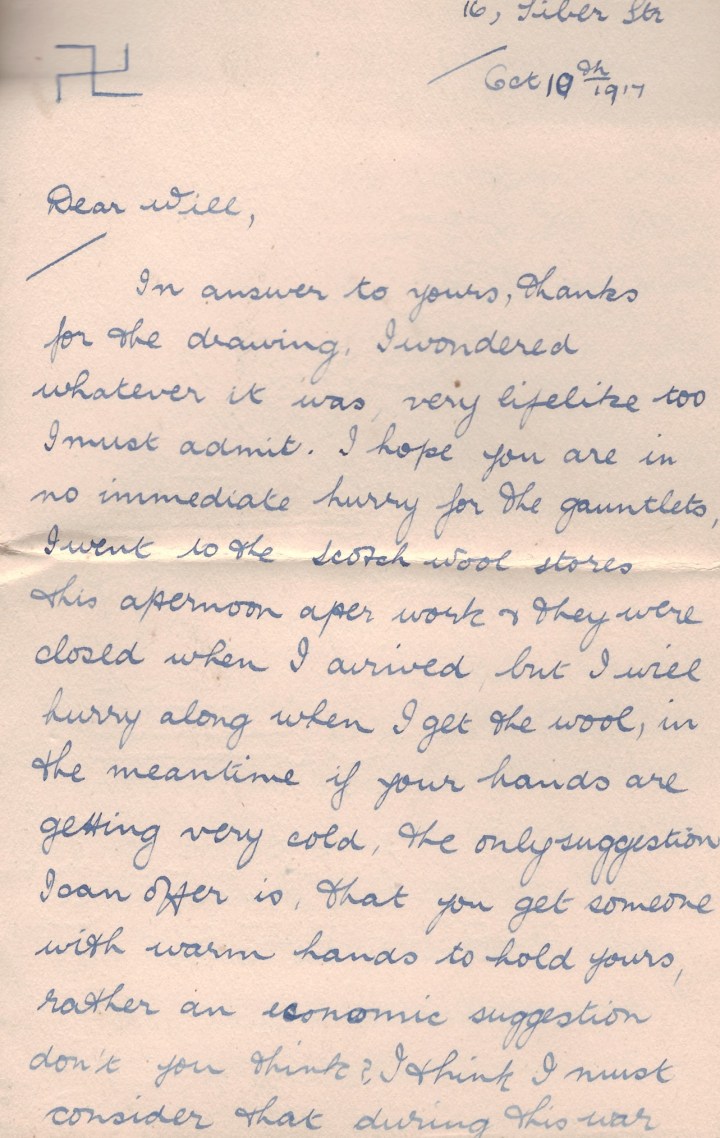 16, Siber Str
Oct 10th 1917
Dear Will,
In answer to yours, thanks
for the drawing, I wondered
whatever it was, very lifelike too
I must admit. I hope you are in
no immediate hurry for the gauntlets,
I went to the Scotch wool stores
this afternoon after work & they were
closed when I arrived, but I will
hurry along when I get the wool, in
the meantime if your hands are
getting very cold, the only suggestion
I can offer is, that you get someone
with warm hands to hold yours,
rather an economic suggestion
don't you think? I think I must
consider that during this war